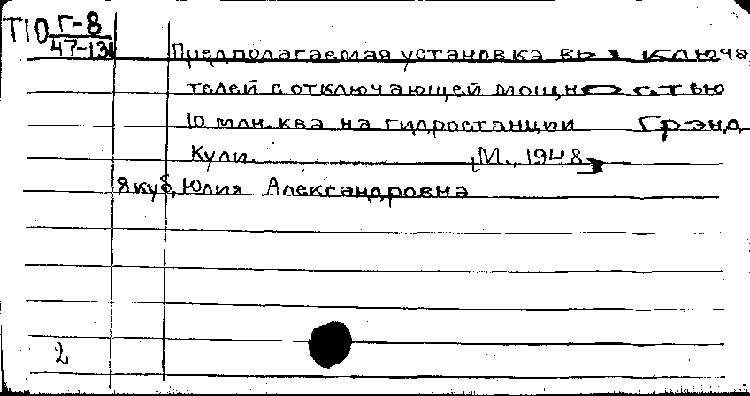 Т10 Г-8
47-13
Предполагаемая установка выключа
телей с отключающей мощностью
10 млн. ква на гидростанции Грэнд
Кули. [М., 1948]
Якуб, Юлия Александровна
2